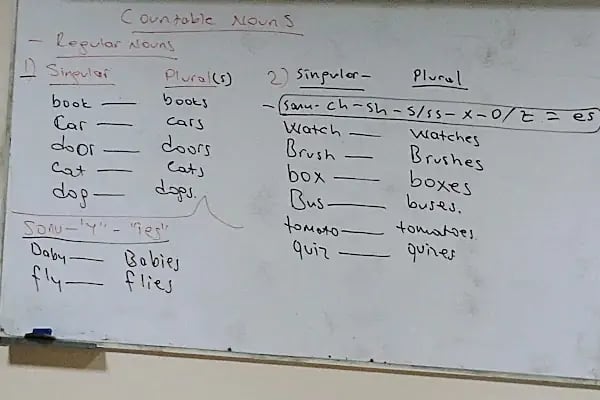 Countable Nouns
- Regular Nouns
1) Singular Plural(s)
book — books
Car — cars
door — doors
cat — cats
dog — dogs.
Sonu - "y" - "ies"
Baby — Babies
fly — flies
2) Singular - Plural
- Sonu - ch - sh - s/ss - x - o/z = es
Watch — watches
Brush — Brushes
box — boxes
Bus — buses.
tomato — tomatoes
quiz — quizes